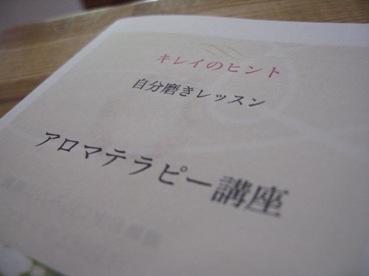 キレイのヒント
自分磨きレッスン
アロマテラピー講座